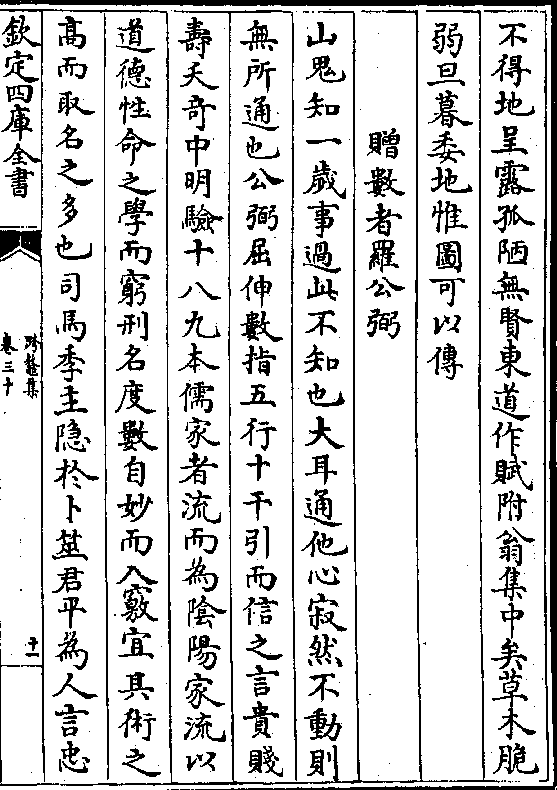 不得地呈露孤陋無賢東道作賦附翁集中矣草木脆
弱旦暮委地惟圖可以傳
贈數者羅公弼
山鬼知一歲事過此不知也大耳通他心寂然不動則
無所通也公弼屈伸數指五行十干引而信之言貴賤
壽夭奇中明驗十八九本儒家者流而為陰陽家流以
道德性命之學而窮刑名度數自妙而入竅宜其術之
高而取名之多也司馬季主隐於卜筮君平為人言忠
欽定四庫全書
卷三十
十一